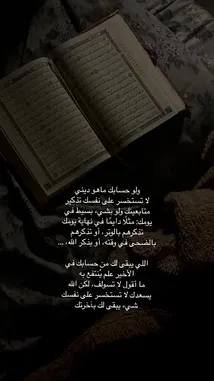 ولو حسابك ماهو ديني
لا تستخسر على نفسك تذكير
متابعينك ولو بشيء بسيط في
يومك: مثلًا دايمًا في نهاية يومك
تذكرهم بالوتر، أو تذكرهم
بالضحى في وقته، أو بذكر الله، ...
اللي يبقى لك من حسابك في
الأخير علم يُنتفع به
ما أقول لا تسولف، لكن الله
يسعدك لا تستخسر على نفسك
شيء يبقى لك بآخرتك